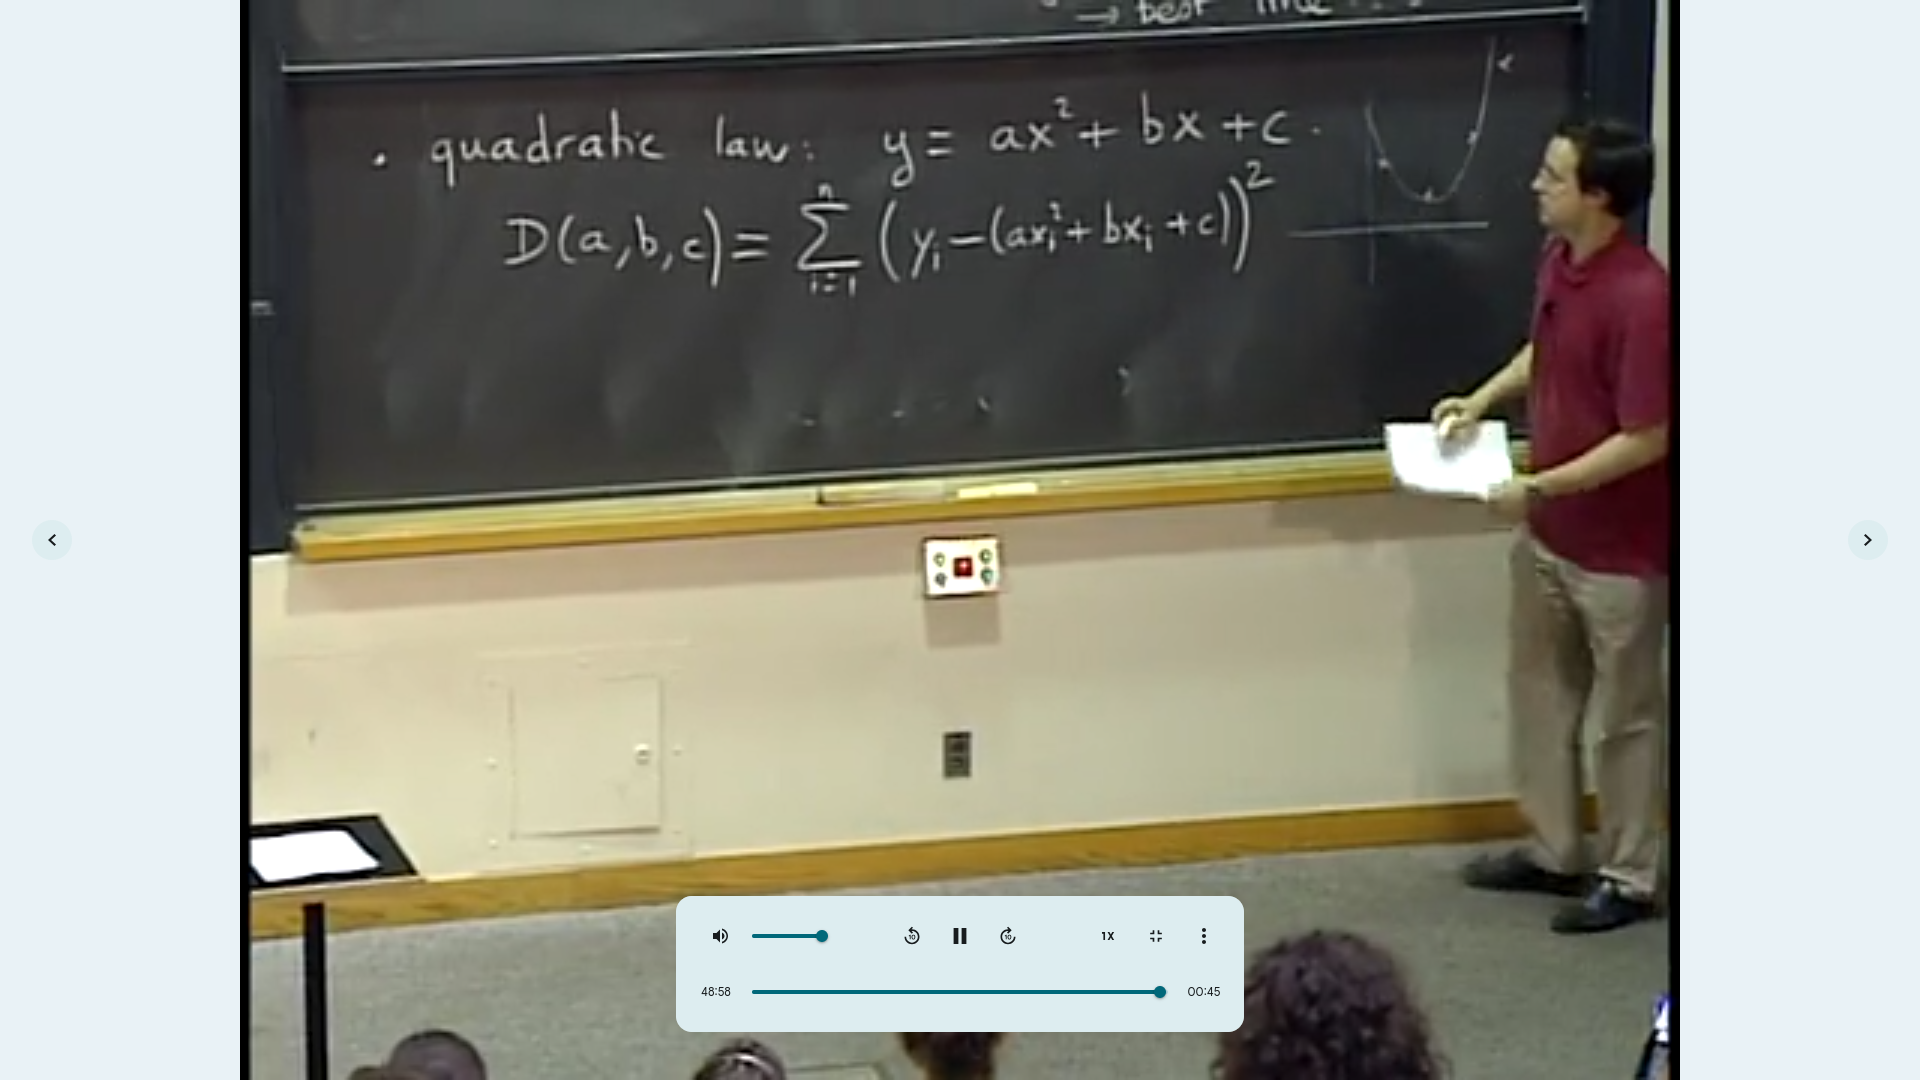 → best line
• quadratic law: y = ax² + bx + c.
D(a,b,c) = ∑ⁿᵢ₌₁ (yᵢ − (axᵢ² + bxᵢ + c))²
10 10 1X
48:58 00:45